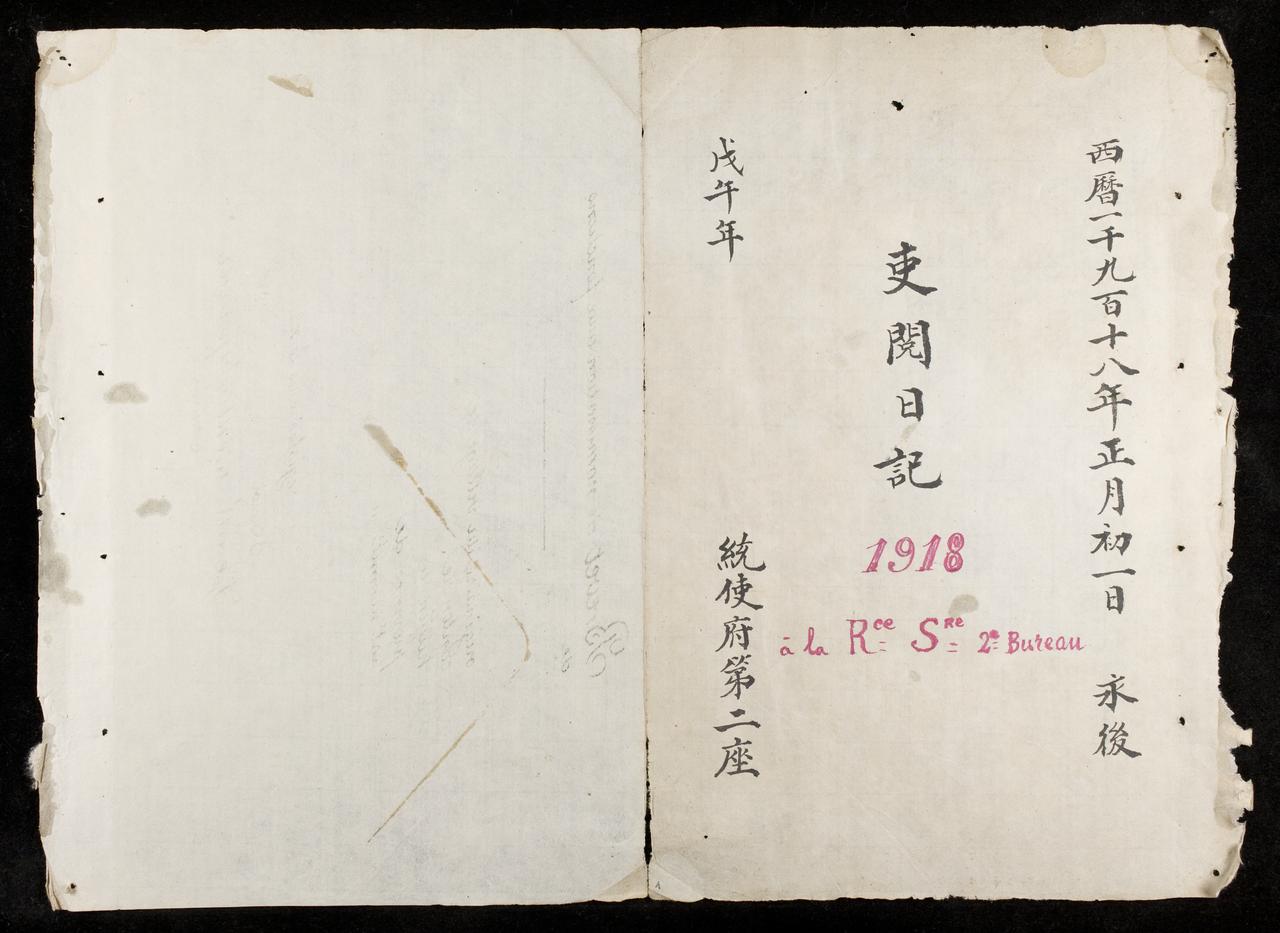 西曆一千九百十八年正月初一日 永後
吏閱日記
1918
à la Rce Sre 2e Bureau
戊午年
統使府第二座